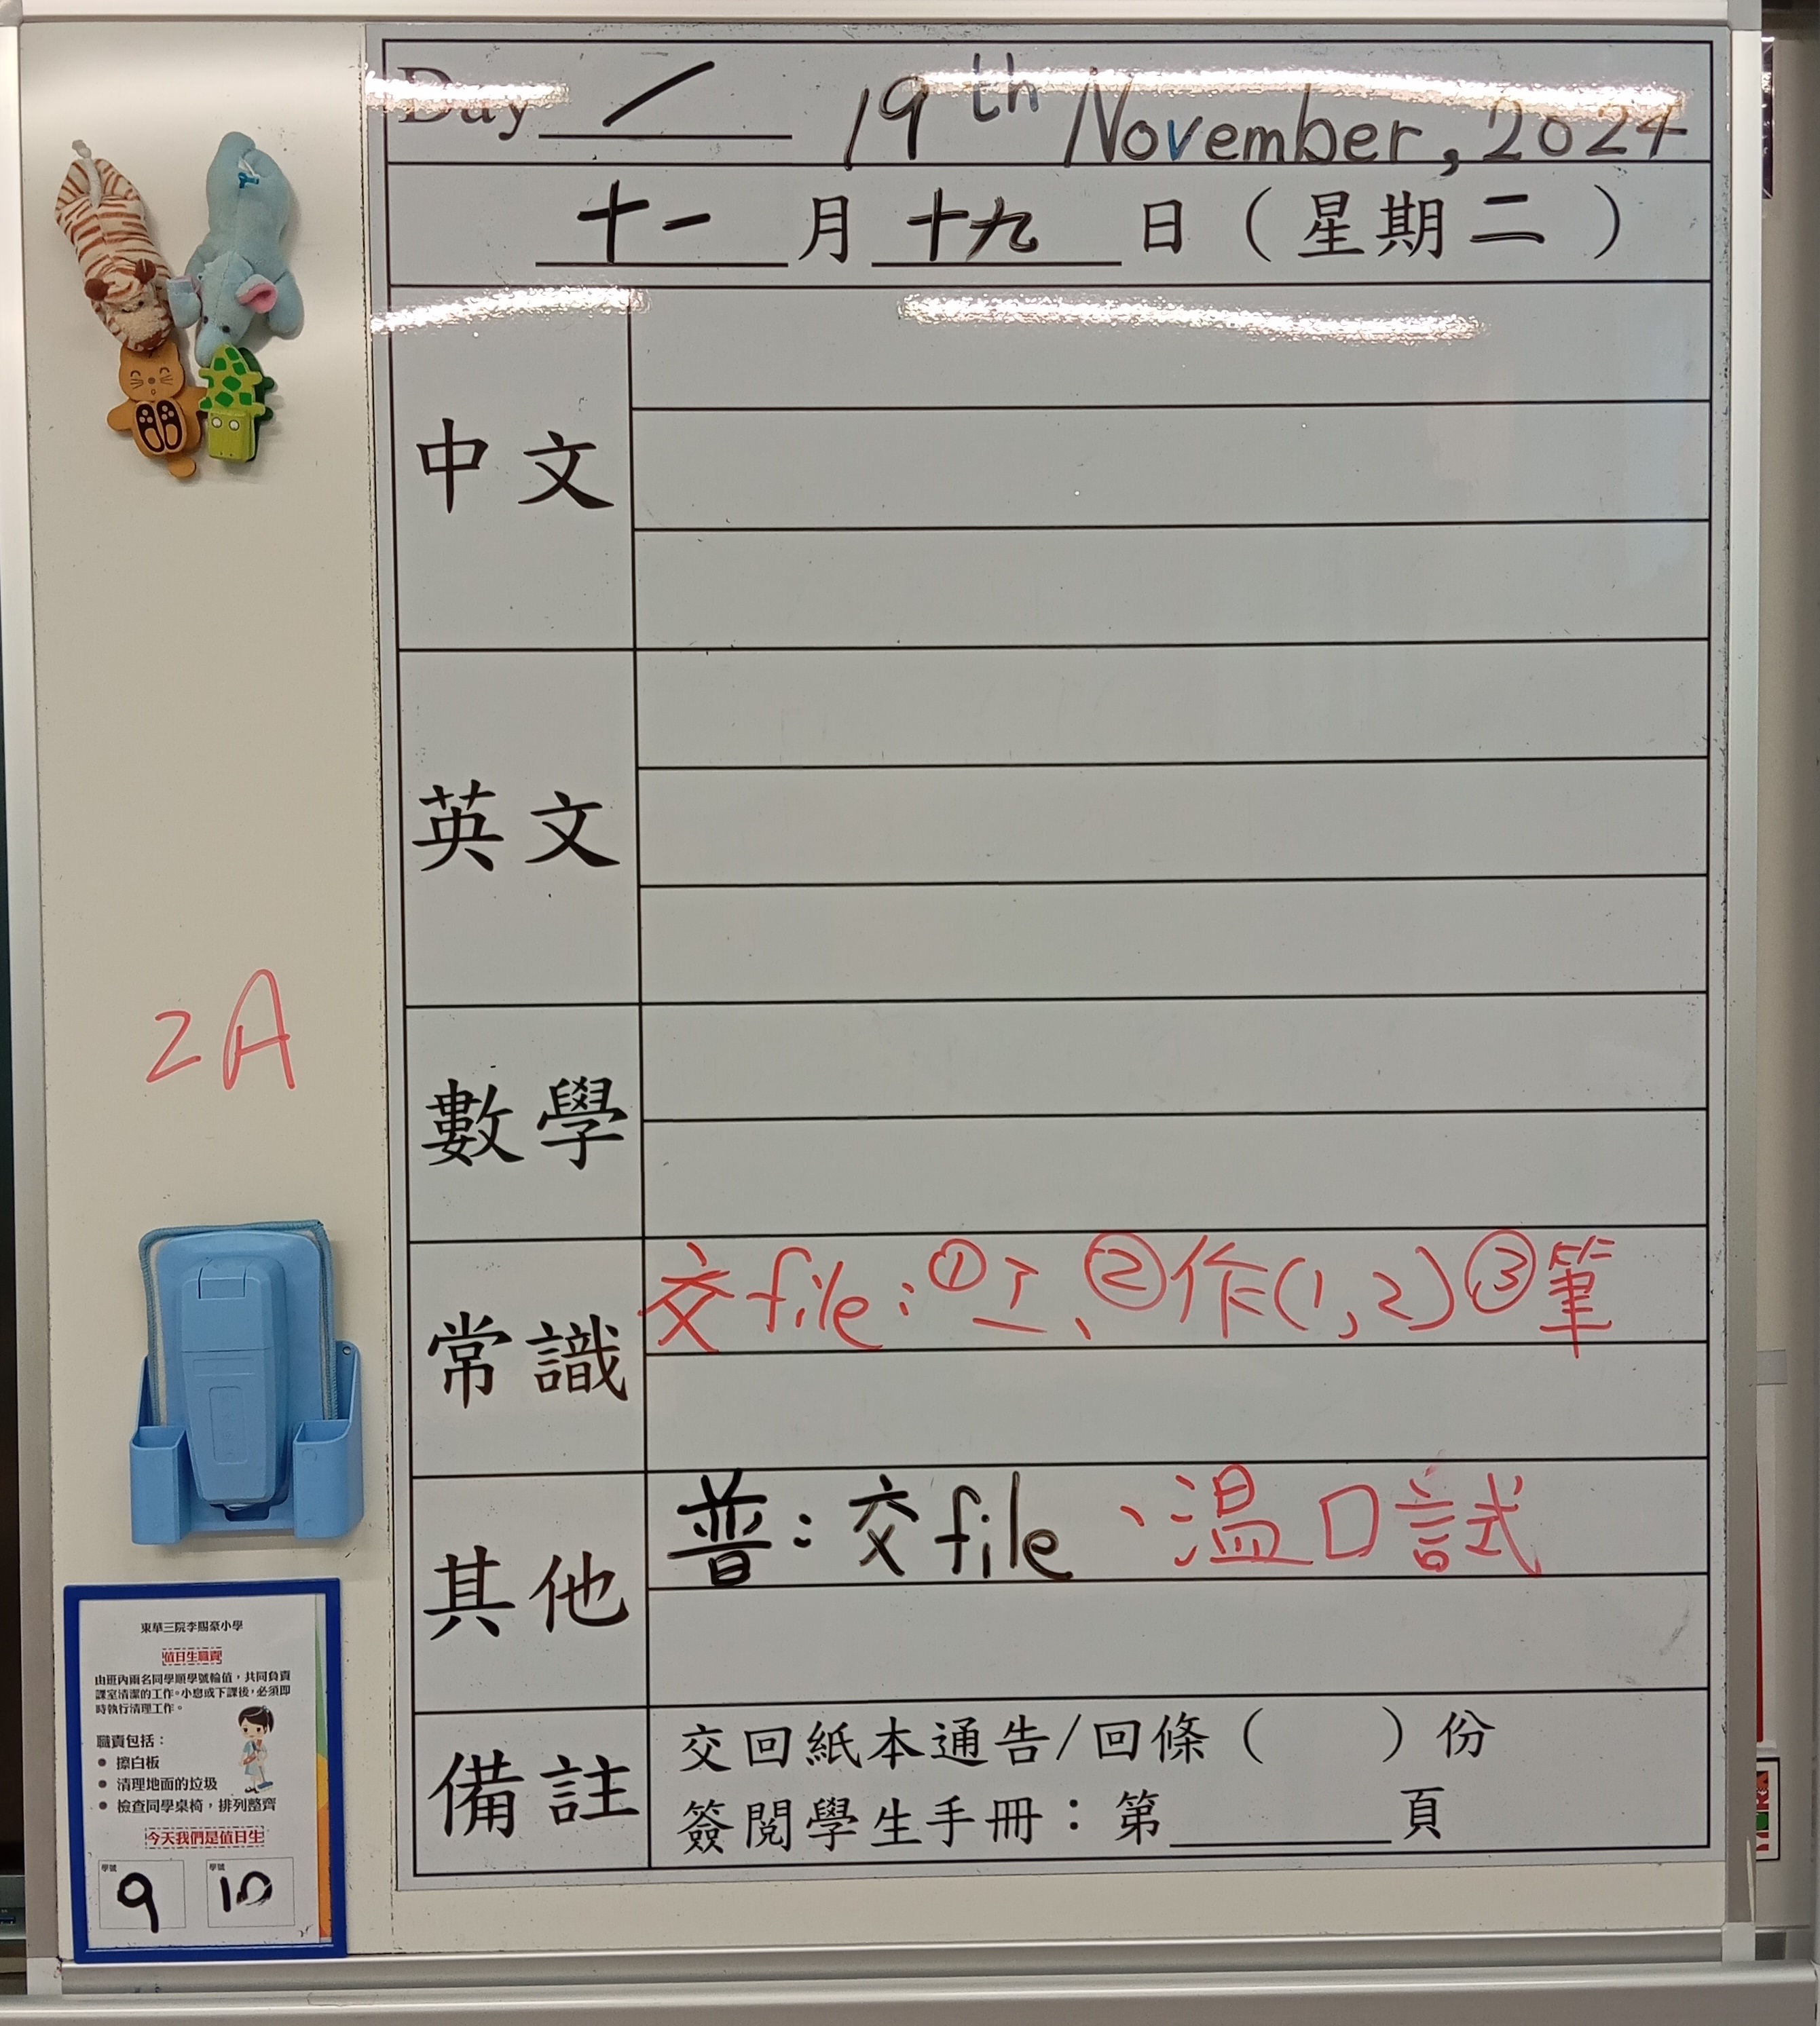 Day / 19th November, 2024
十一月十九日（星期二）
中文
英文
2A
數學
常識
交file:①工、②作(1,2)③筆
其他
普:交file、溫口試
備註
交回紙本通告/回條（ ）份
簽閱學生手冊：第______頁
東華三院李賜豪小學
值日生職責
由班內兩名同學順學號輪值，共同負責
課室清潔的工作。小息或下課後，必須即
時執行清理工作。
職責包括：
● 擦白板
● 清理地面的垃圾
● 檢查同學桌椅，排列整齊
今天我們是值日生
學號 學號
9 10